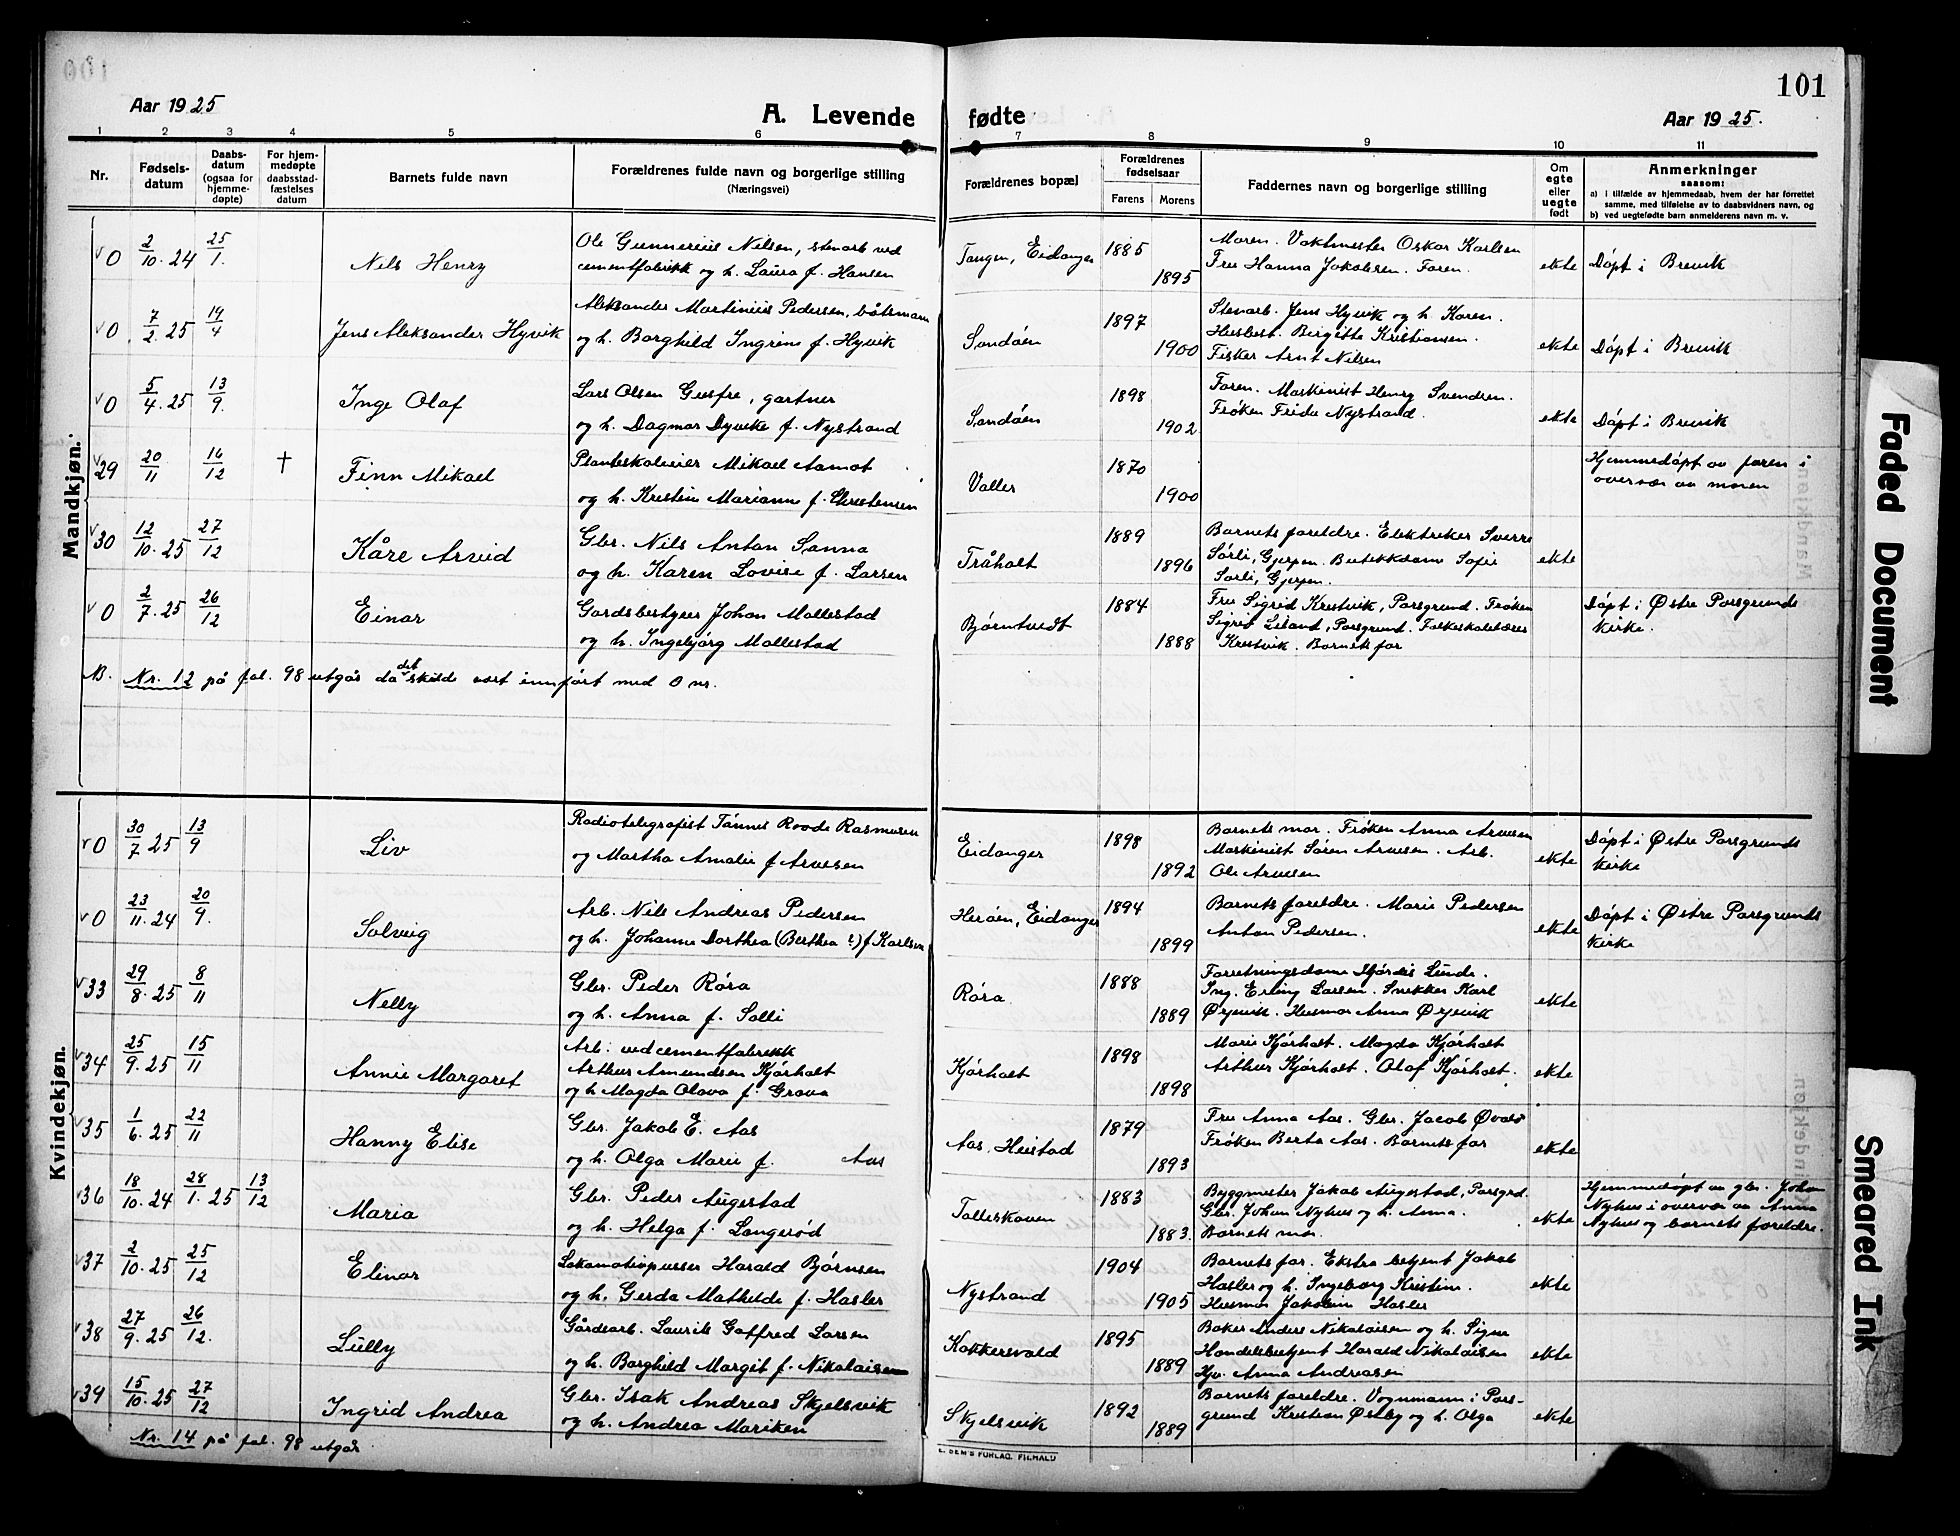 101
Aar 1925
A. Levende fødte
Aar 1925.
1 2 3 4 5 6 7 8 9 10 11
Nr.
Fødsels-
datum
Daabs-
datum
(ogsaa for
hjemme-
døpte)
For hjem-
medøpte
daabsstad-
fæstelses
datum
Barnets fulde navn
Forældrenes fulde navn og borgerlige stilling
(Næringsvei)
Forældrenes bopæl
Forældrenes
fødselsaar
Farens Morens
Faddernes navn og borgerlige stilling
Om
egte
eller
uegte
født
Anmerkninger
saasom:
a) i tilfælde av hjemmedaab, hvem der har forrettet
samme, med tilføielse av to daabsvidners navn, og
b) ved uegtefødte barn anmelderens navn m. v.
Mandkjøn.
v0 2/10.24 25/1. Nils Henry
Ole Gunnerius Nilsen, stenarb. ved
cementfabrikk og h. Laura f. Hansen
Tangen, Eidanger 1885 1895
Moren. Vaktmester Oskar Karlsen
Fru Hanna Jakobsen. Faren.
ekte Døpt i Brevik
v0 7/2.25 19/4 Jens Aleksander Hyvik
Aleksander Martinius Pedersen, båtsmann
og h. Borghild Ingrine f. Hyvik
Sandøen 1897 1900
Stenarb. Jens Hyvik og h. Karen.
Husbest. Birgitte Kristiansen.
Fisker Arnt Nilsen
ekte Døpt i Brevik
v0 5/4.25 13/9. Inge Olaf
Lars Olsen Gusfre, gartner
og h. Dagmar Dyveke f. Nystrand
Sandøen 1898 1902
Faren. Maskinist Henry Svendsen.
Frøken Frida Nystrand.
ekte Døpt i Brevik
v29 20/11 16/12 † Finn Mikael
Planteskoleeier Mikael Aamot
og h. Kristine Marianne f. Christensen
Valler 1870 1900
Hjemmedøpt av faren i
overvær av moren
v30 12/10.25 27/12 Kåre Arvid
Gbr. Nils Anton Sanna
og h. Karen Lovise f. Larsen
Tråholt 1889 1896
Barnets foreldre. Elektriker Sverre
Sørli, Gjerpen. Butikkdame Sofie
Sørli, Gjerpen.
ekte
v0 2/7.25 26/12 Einar
Gårdsbestyrer Johan Mollestad
og h. Ingebjørg Mollestad
Bjørntvedt 1884 1888
Fru Sigrid Krestvik, Porsgrund. Frøken
Sigrid Leland, Porsgrund. Folkeskolelærer
Krestvik. Barnets far
Døpt i Østre Porsgrunds
kirke.
NB. Nr. 12 på fol. 98 utgår da det skulde vært innført med 0 nr.
Kvindekjøn.
v0 30/7 25 13/9 Liv
Radiotelegrafist Tønnes Roode Rasmussen
og Martha Amalie f Arvesen
Eidanger 1898 1892
Barnets mor. Frøken Anna Arvesen
Maskinist Søren Arvesen. Arb.
Ole Arvesen
ekte Døpt i Østre Porsgrunds
kirke
v0 23/11.24 20/9. Solveig
Arb. Nils Andreas Pedersen
og h. Johanne Dorthea (Berthea ?) f Karlsen
Herøen, Eidanger 1894 1899
Barnets foreldre. Marie Pedersen
Anton Pedersen.
ekte Døpt i Østre Porsgrunds
kirke
v33 29/8.25 8/11 Nelly
Gbr. Peder Røra
og h. Anna f. Solli
Røra 1888 1889
Forretningsdame Hjørdis Lunde.
Ing. Erling Larsen. Snekker Karl
Ørjevik. Husmor Anna Ørjevik
ekte
v34 25/9.25 15/11 Annie Margaret
Arb. ved cementfabrikk
Arthur Amundsen Kjørholt
og h Magda Olava f. Grava
Kjørholt 1898 1898
Marie Kjørholt. Magda Kjørholt
Arthur Kjørholt. Olaf Kjørholt.
ekte
v35 1/6.25 22/11 Hanny Elise
Gbr. Jakob E. Aas
og h. Olga Marie f. Aas
Aas, Heistad 1879 1893
Fru Anna Aas. Gbr. Jacob
Frøken Berta Aas. Barnets far
ekte
v36 18/10.24 28/1.25 13/12 Maria
Gbr. Peder Augestad
og h. Helga f. Langerød
Tolleskoven 1883 1883.
Byggmester Jakob Augestad, Porsgrd.
Gbr. Johan Nyhus og h. Anna.
Barnets mor.
ekte Hjemmedøpt av gbr. Johan
Nyhus i overvær av Anna
Nyhus og barnets foreldre.
v37 2/10.25 25/12 Elinar
Lokomotivpusser Harald Bjørnsen
og h. Gerda Mathilde f. Hasler
Nystrand 1904 1905
Barnets far. Ekstra betjent Jakob
Hasler og h. Ingeborg Kristine.
Husmor Jakobine Hasler
ekte
v38 27/9.25 26/12. Lully
Gårdsarb. Laurits Gotfred Larsen
og h. Borghild Margit f. Nikolaisen
Kokkersvold 1895 1889
Baker Anders Nikolaisen og h. Signe
Handelsbetjent Harald Nikolaisen
Hjv. Anna Andreasen
ekte
v39 15/10.25 27/12 Ingrid Andrea
Gbr. Isak Andreas Skjelsvik
og h. Andrea Mariken
Skjelsvik 1892 1889
Barnets foreldre. Vognmann i Pors-
grund Kristian Østby og h. Olga
ekte
Nr. 14 på fol. 98 utgår
Faded Document
Smeared Ink